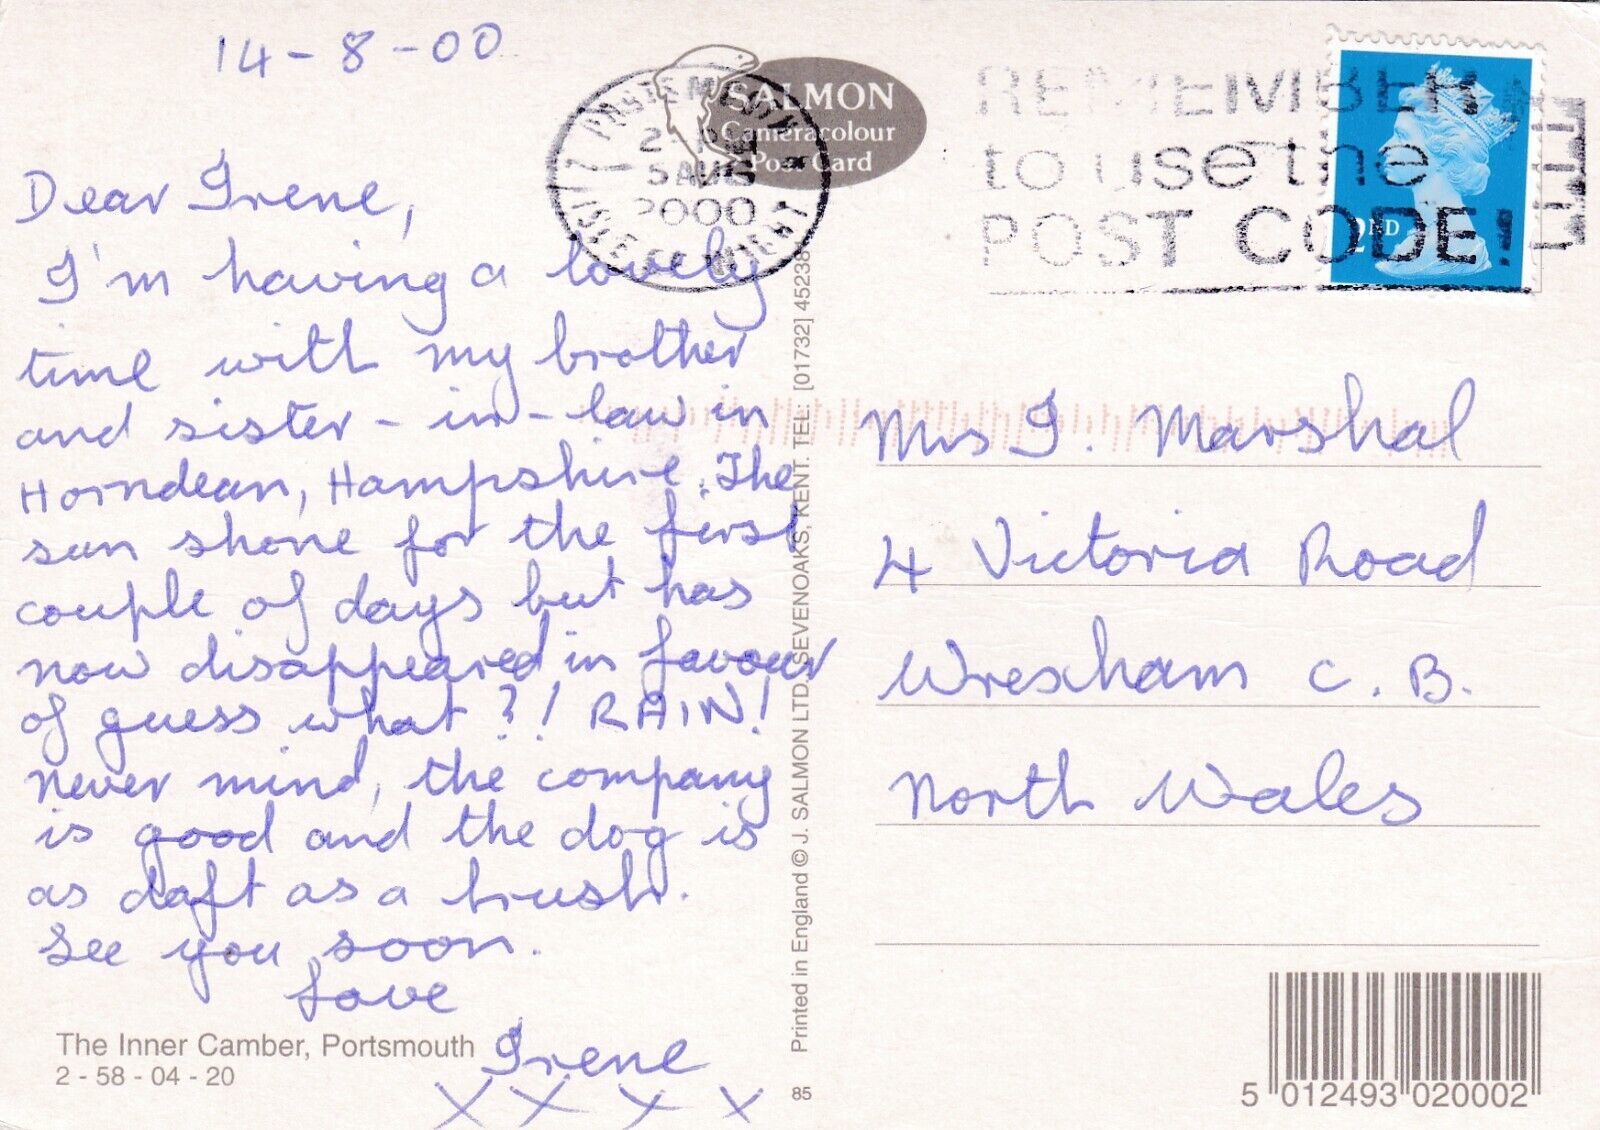 14-8-00
Dear Irene,
I'm having a lovely
time with my brother
and sister-in-law in
Horndean, Hampshire. The
sun shone for the first
couple of days but has
now disappeared in favour
of guess what?! RAIN!
Never mind, the company
is good and the dog is
as daft as a brush.
See you soon.
Love
Irene
X X X X
The Inner Camber, Portsmouth
2 - 58 - 04 - 20
SALMON
Cameracolour
Post Card
AUG
2000
ISLE OF WIGHT
REMEMBER
to use the
POST CODE!
2ND
Printed in England © J. SALMON LTD., SEVENOAKS, KENT. TEL: [01732] 45238
85
Mrs I. Marshal
4 Victoria Road
Wrexham C.B.
North Wales
5 012493 020002